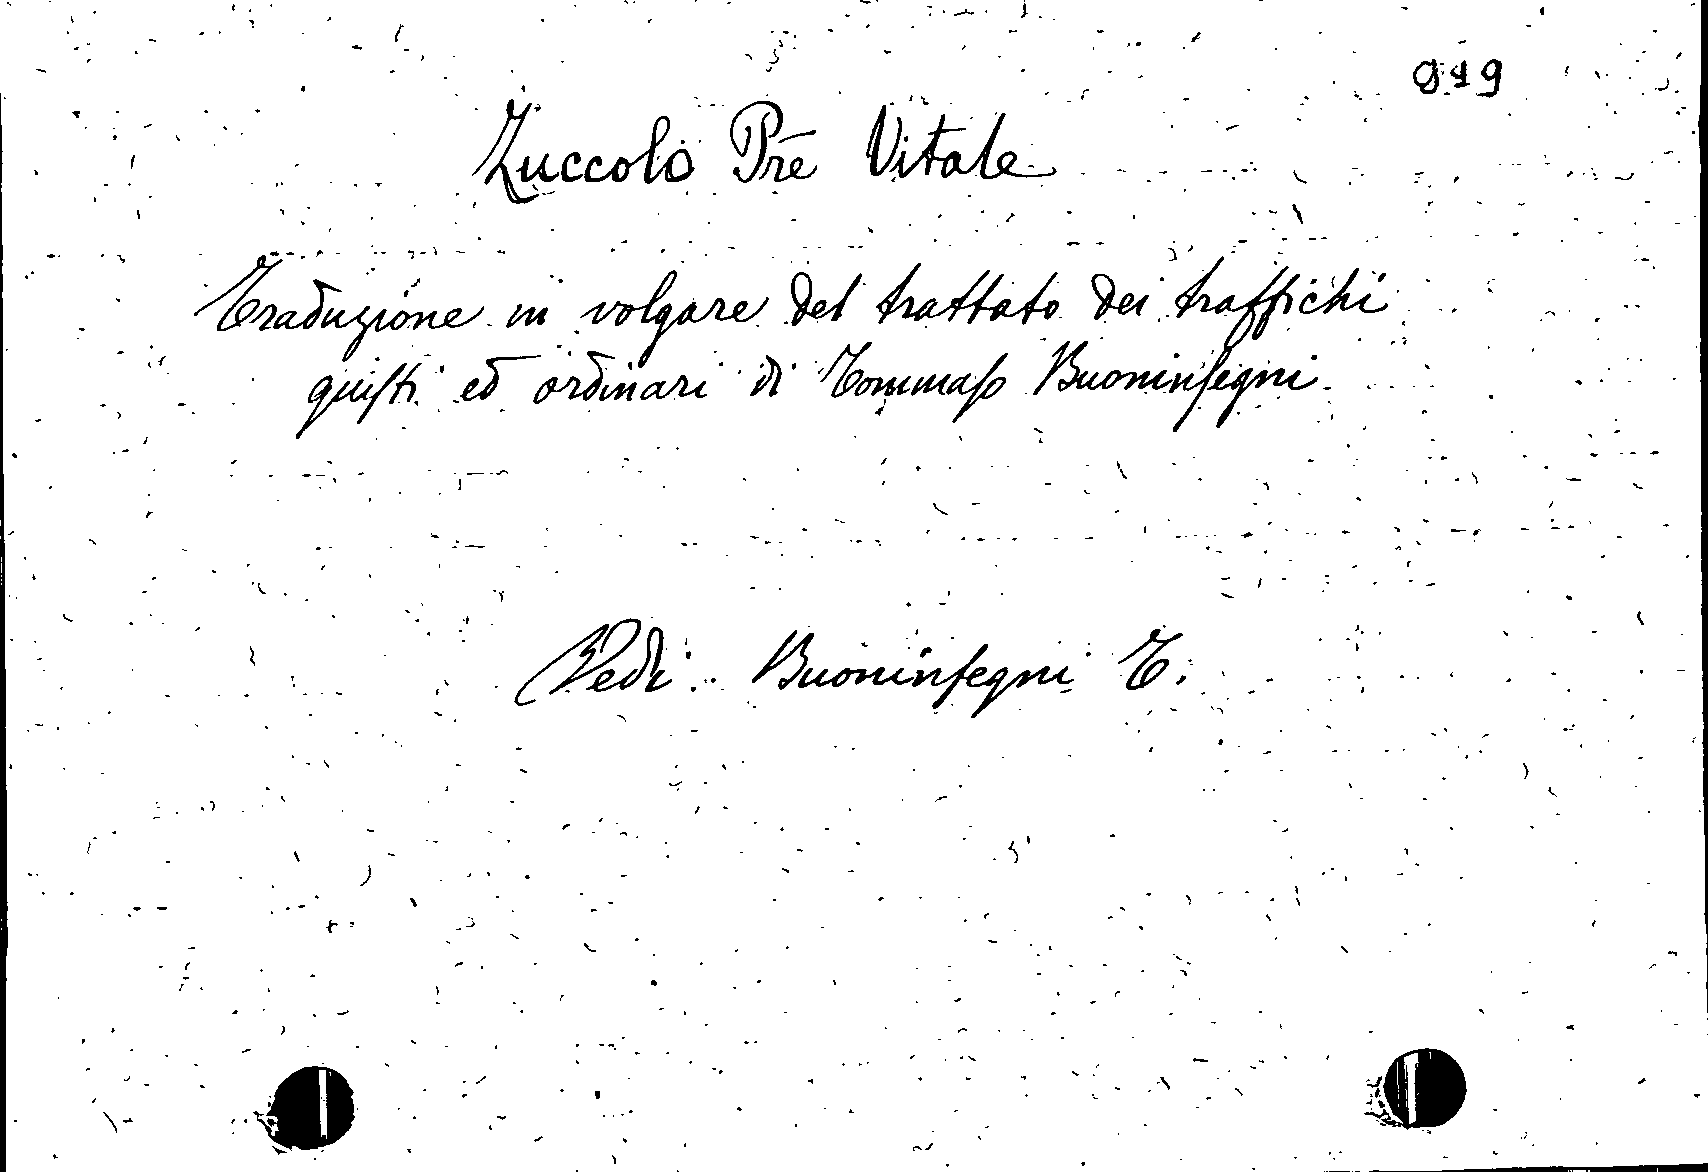 919
Zuccolo Pre Vitale
Traduzione in volgare del trattato dei traffichi
giusti ed ordinari di Tommaso Buoninsegni
Vedi Buoninsegni T.